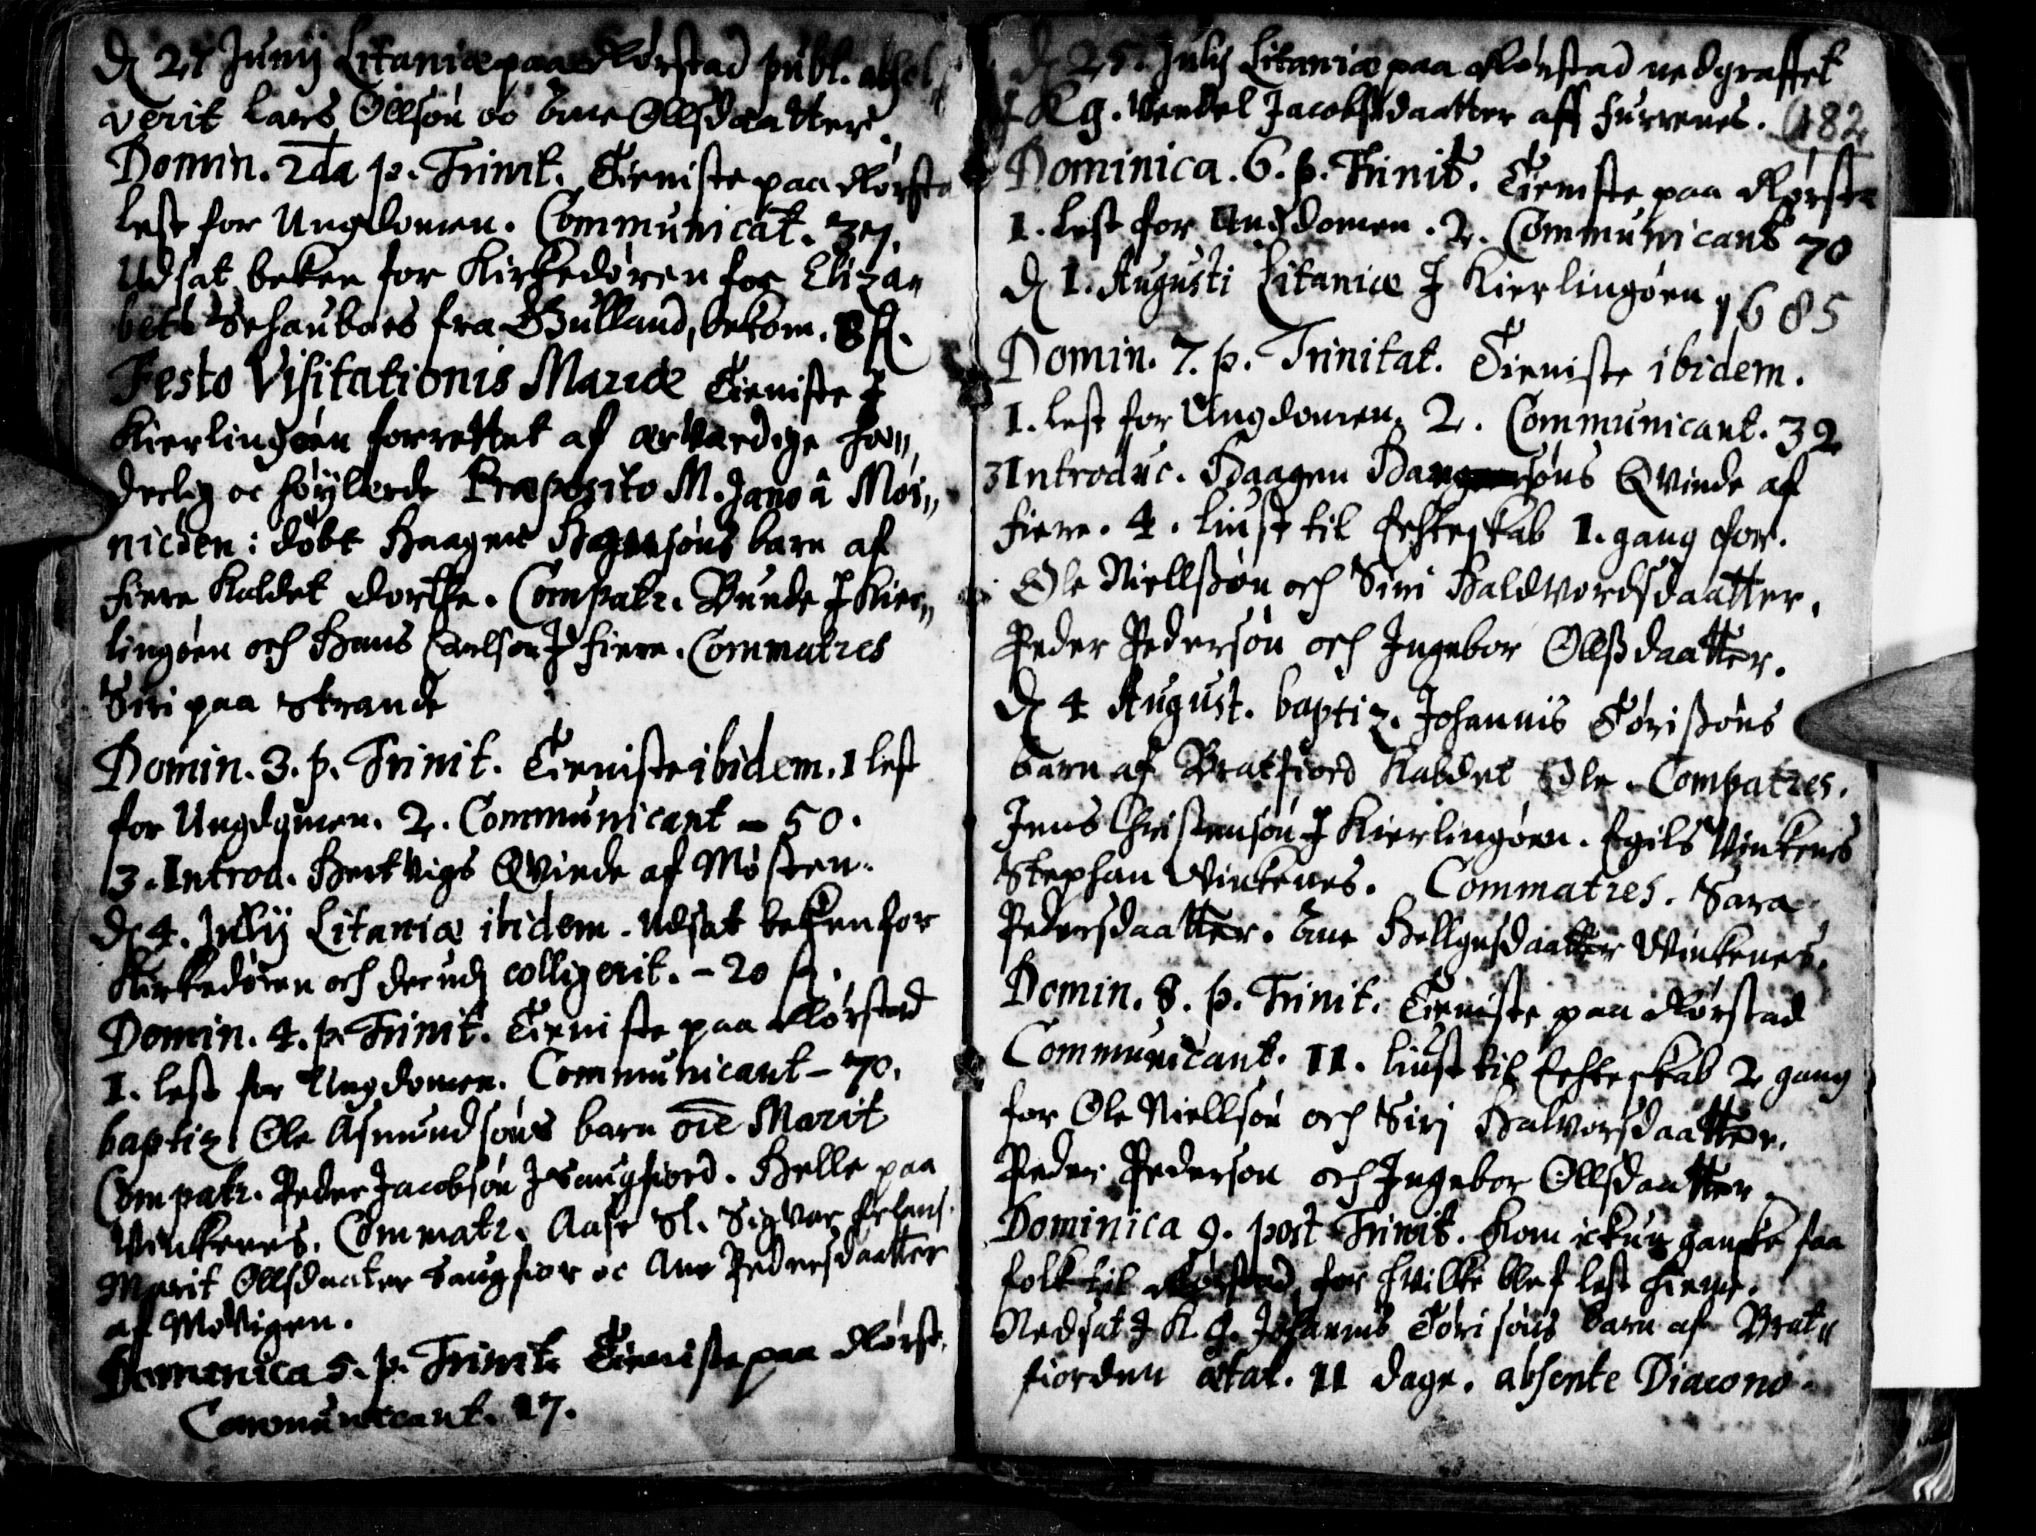 D 27 Junij Litaniæ paa Rørstad publ. absol,
verit Lars Ollsøn oc Ane Ollsdaatter.
Domin. 2da p. Trinit. Tieniste paa Rørsta
lest for Ungdomen. Communicat. 37.
Udsat beken for Kirkedøren for Eliza,,
beth Schauboes fra Gulland, bekom. 8 ſl.
Festo Visitationis Mariæ Tieniste J
Kierlingøen forrettet af ærværdige hæn,,
derlig oc høylærde Præposito M. Jano à Møi,,
nichen: døbt Haagen Hagensøns barn af
Fiere kaldet Dorthe. Compatr. Bunde J Kier,,
lingøen och Hans Carlson J Fiere. Commatres
Siri paa Strande
Domin. 3. p. Trinit. Tieniste ibidem. 1 lest
for Ungdomen. 2. Communicant - 50.
3. Introd. Hertvigs Qvinde af Møsten.
D. 4. Julij Litaniæ ibidem. Udsat beken for
Kirkedøren och der udj colligerit. - 20 ſl.
Domin. 4. p. Trinit. Tieniste paa Rørstad
1. lest for Ungdomen. Communicant - 70.
baptiz. Ole Asmundsøns barn Marit
Compatr. Peder Jacobsøn J Saugfiord. Helle paa
Vinkenes. Commatr. Aase Sl. Sigvar
Marit Ollsdaater Saugfior oc Ane Pedersdaatter
af Movigen.
Domenica 5. p. Trinit. Tieniste paa Rørst.
Communicant. 17.
D 25. Julij Litaniæ paa Rørstad nedgraffvet
J K g. Vendel Jacobsdaatter aff Furrenes. 182
Dominica. 6. p. Trinit. Tieniste paa Rørsta
1. lest for Ungdomen. 2. Communicant 70
D 1. Augusti Litaniæ J Kierlingøen 1685
Domin. 7. p. Trinitat. Tieniste ibidem.
1. lest for Ungdomen. 2. Communicant. 32
3 Introduc. Haagen Qvinde af
Fiere. 4. liust til Echteskab 1. gang for.
Ole Niellsßøn och Siri Haldvordsdaatter.
Peder Pedersøn och Ingebor Ollßdaatter.
D 4 August. baptiz. Johannis Tørißøns
barn af Bratfiord kaldet Ole. Compatres.
Jens Christensøn J Kierlingøen. Egils Vinkenes
Stephan Vinkenes. Commatres. Sara
Pedersdaatter. Ane Hellgesdaatter Vinkenes.
Domin. 8. p. Trinit. Tieniste paa Rørstad
Communicant. 11. liust til Echteskab 2 gang
for Ole Niellsøn och Sirj Halvorsdaatter.
Peder Pedersøn och Ingebor Ollsdaatter
Dominica 9. post Trinit. kom ickun ganske faa
folk til Rørstad, for hvilke blef lest
Nedsat J K. g. Johannis Tørisøns barn af Brat,,
fiorden ætat. 11 dage. absente Diacono.